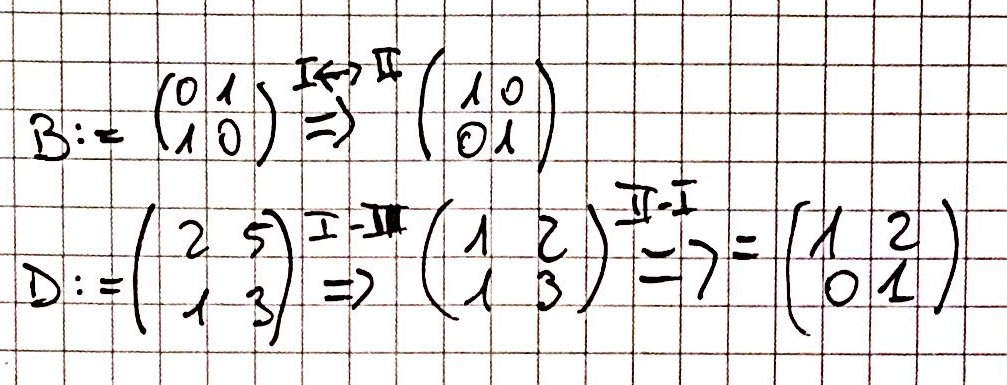 B := (0 1 / 1 0) I↔II ⇒ (1 0 / 0 1)
D := (2 5 / 1 3) I-II ⇒ (1 2 / 1 3) II-I ⇒ = (1 2 / 0 1)